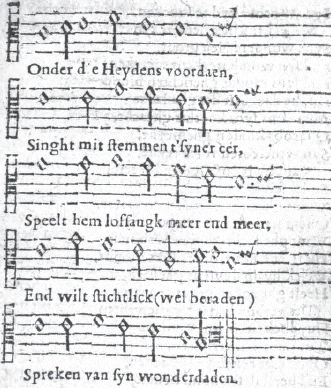 Onder d'e Heydens voordaen,
Singht mit stemmen t'syner eer,
Speelt hem lofsangk meer end meer,
End wilt stichtlick (wel beraden)
Spreken van syn wonderdaden.